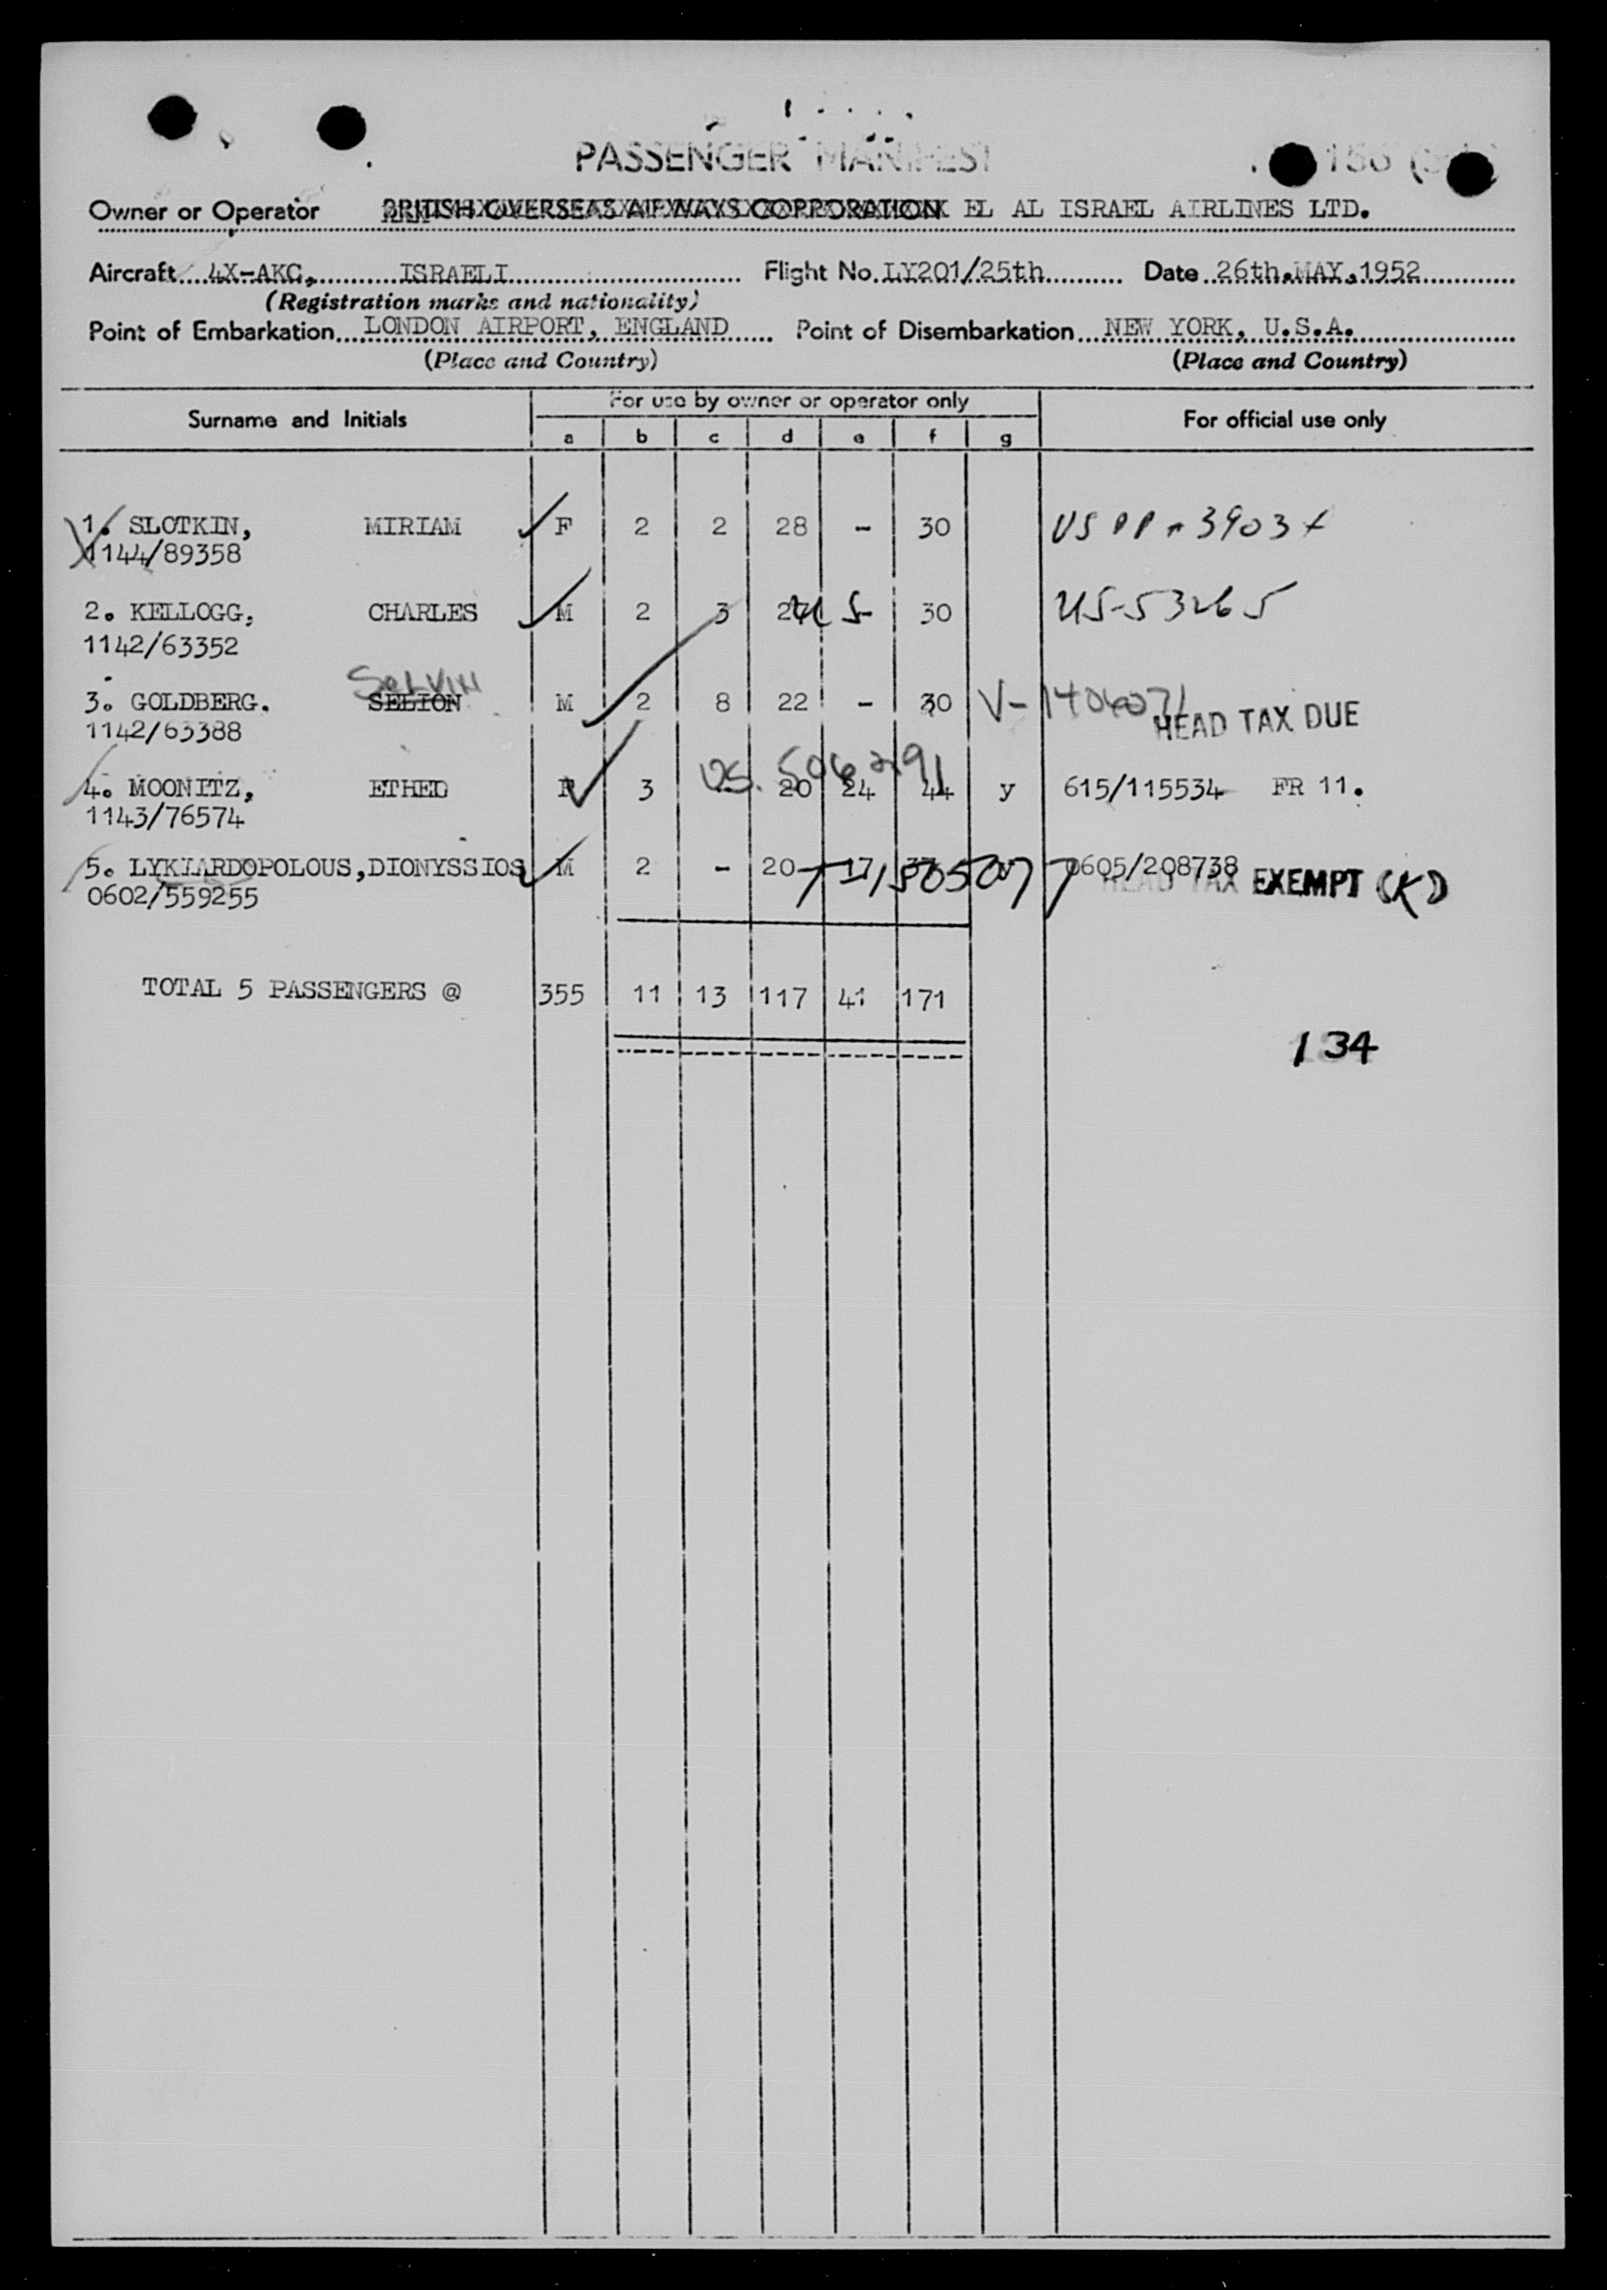 PASSENGER MANIFEST
Owner or Operator BRITISH OVERSEAS AIRWAYS CORPORATION EL AL ISRAEL AIRLINES LTD.
Aircraft 4X-AKC, ISRAELI Flight No. LY201/25th Date 26th.MAY.1952
(Registration marks and nationality)
Point of Embarkation LONDON AIRPORT, ENGLAND Point of Disembarkation NEW YORK, U.S.A.
(Place and Country) (Place and Country)
For use by owner or operator only
Surname and Initials For official use only
a b c d e f g
1. SLOTKIN, MIRIAM F 2 2 28 - 30
1144/89358
2. KELLOGG, CHARLES M 2 3 30 US-53265
1142/63352
SELVIN
3. GOLDBERG. SELION M 2 8 22 - 30 V-1404071
1142/63388 HEAD TAX DUE
US. 506291
4. MOONITZ, ETHED F 3 20 24 44 y 615/115534 FR 11.
1143/76574
5. LYKIARDOPOLOUS, DIONYSSIOS M 2 - 20 17 37 0605/208738
0602/559255 HEAD TAX EXEMPT (K)
TOTAL 5 PASSENGERS @ 355 11 13 117 41 171
134